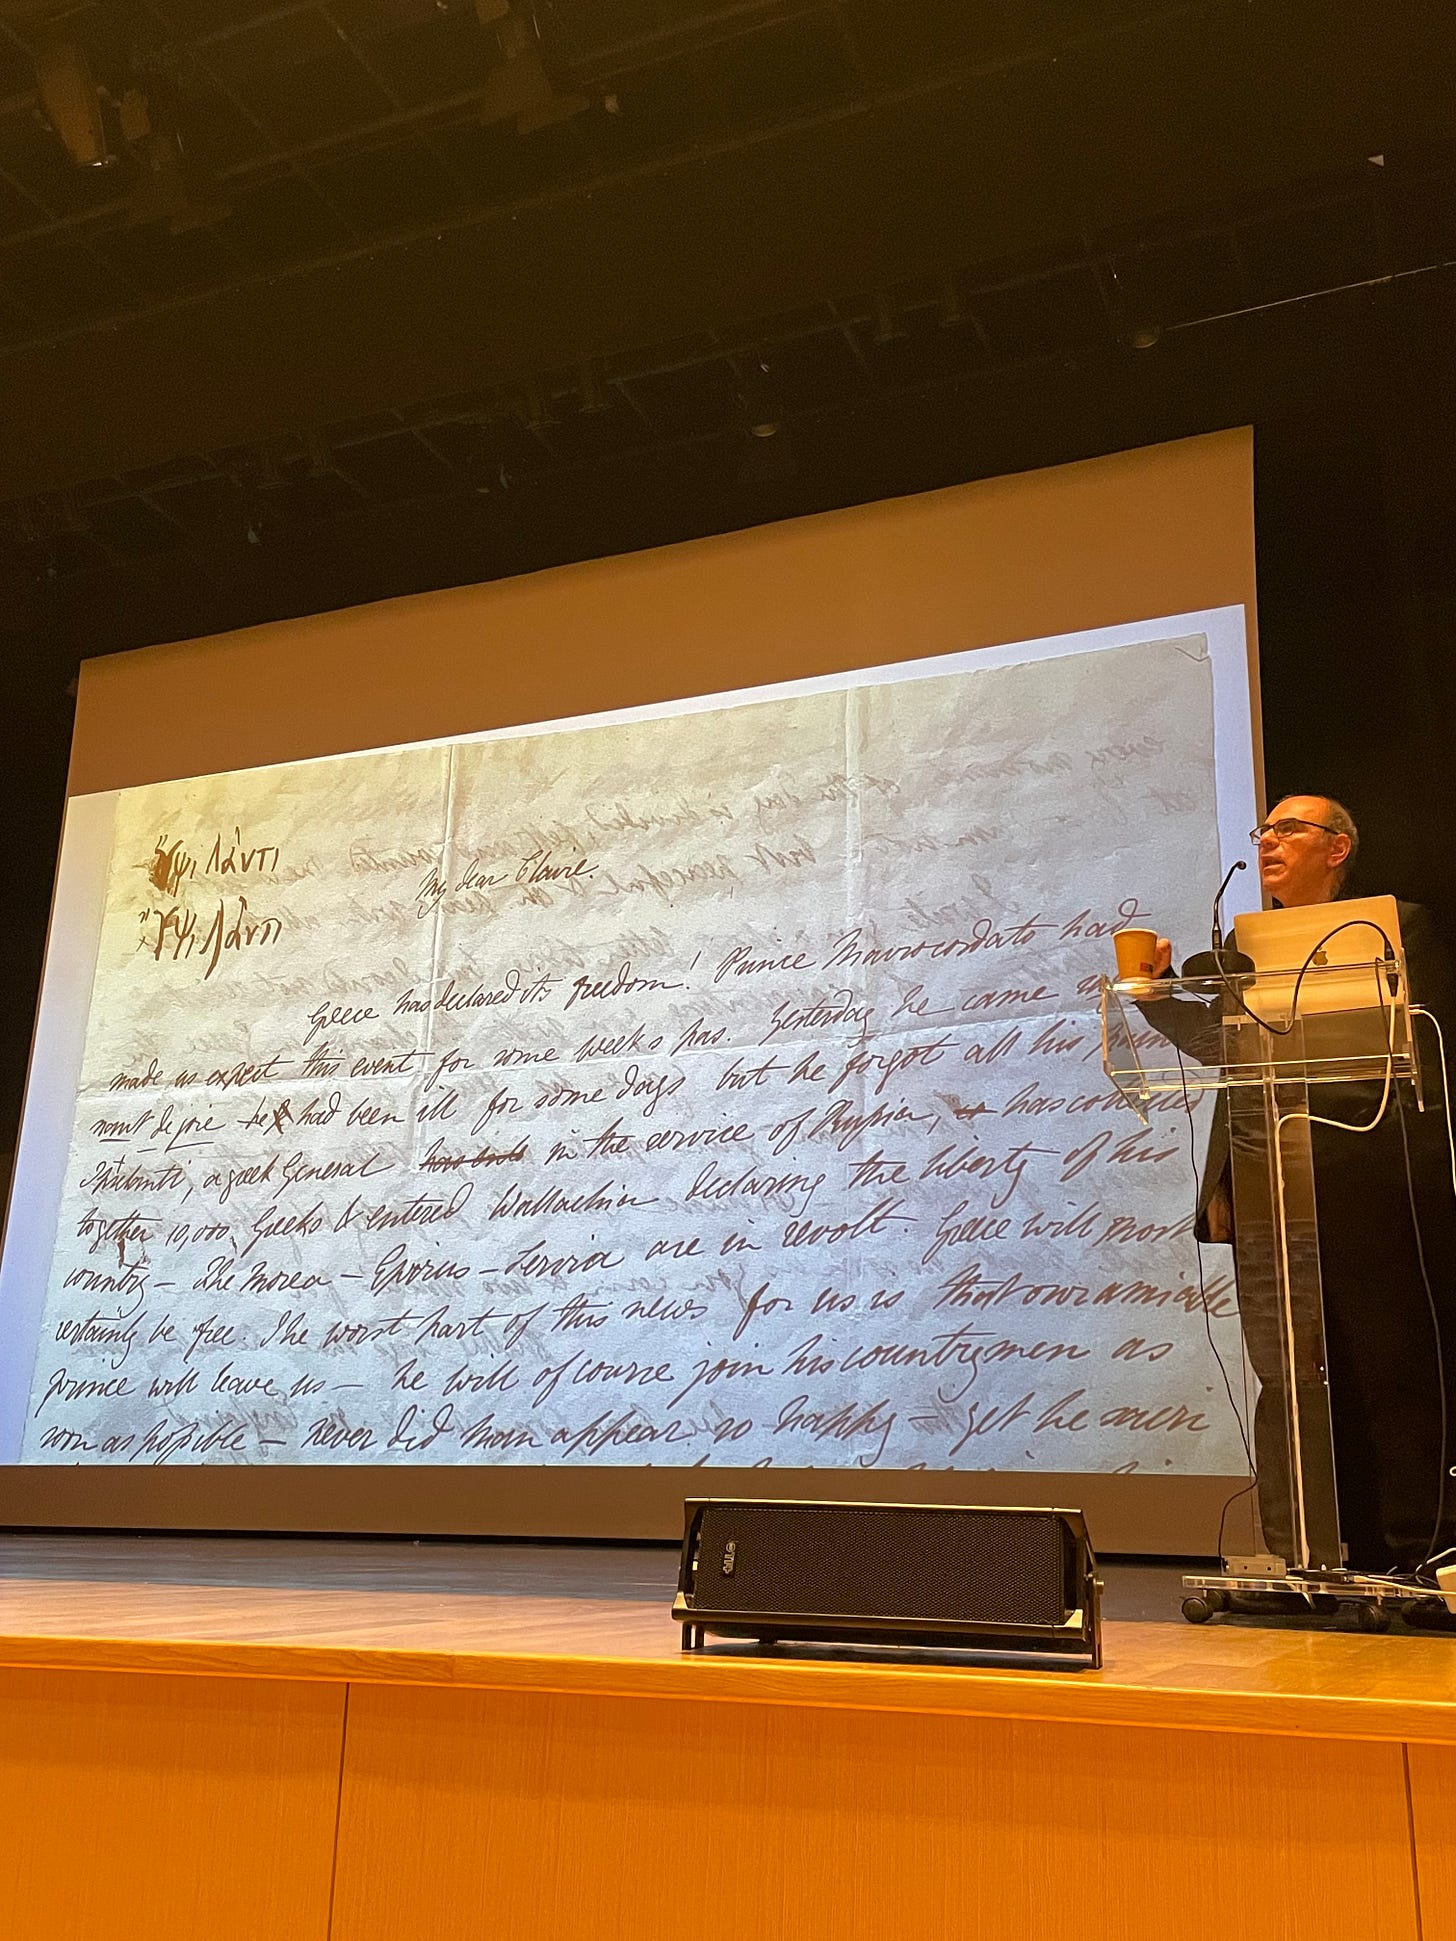 Ὑψιλάντι
My dear Claire.
Ὑψιλάντι
Greece has declared its freedom! Prince Mavrocordato had
made us expect this event for some weeks pas. Yesterday he came
nant de joie he had been ill for some days but he forgot all his pain
a greek General in the service of Russia, has collected
together 10,000 Greeks & entered Wallachia declaring the liberty of his
country – The Morea – Epirus – Servia are in revolt. Greece will most
certainly be free. The worst part of this news for us is that our amiable
prince will leave us – he will of course join his countrymen as
soon as possible – never did man appear so happy – yet he sacri